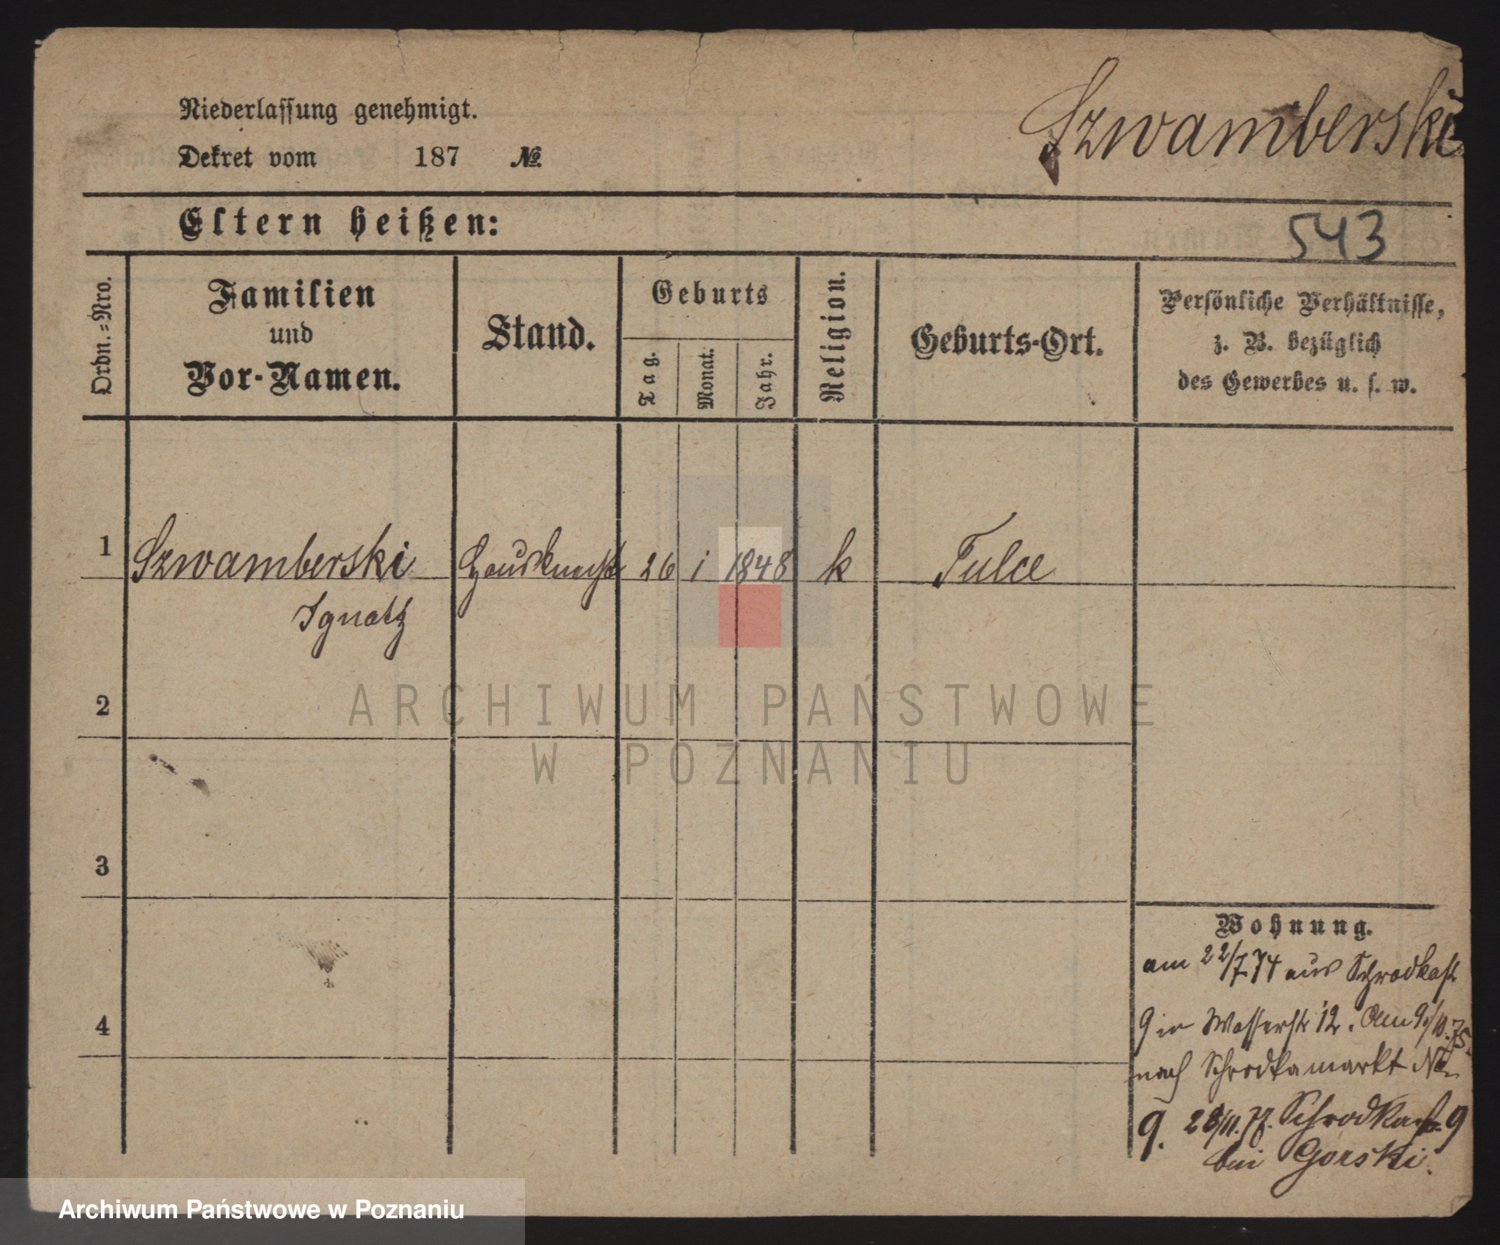 Niederlassung genehmigt.
Szwamberski
Dekret vom 187 №
Eltern heißen:
543
Ordn.-Nro.
Familien
und
Vor-Namen.
Stand.
Geburts
Tag.
Monat.
Jahr.
Religion.
Geburts-Ort.
Persönliche Verhältnisse,
z. B. bezüglich
des Gewerbes u. s. w.
1 Szwamberski Hausknecht 26 i 1848 k Tulce
Ignatz
2
ARCHIWUM PAŃSTWOWE
W POZNANIU
3
Wohnung.
am 22/7 74 aus Schrodkastr
9 in Wasserstr 12. Am 9/10.75.
4
nach Schrodkamarkt No
9. 28/11.77. Schrodkastr. 9
bei Gorski.
Archiwum Państwowe w Poznaniu